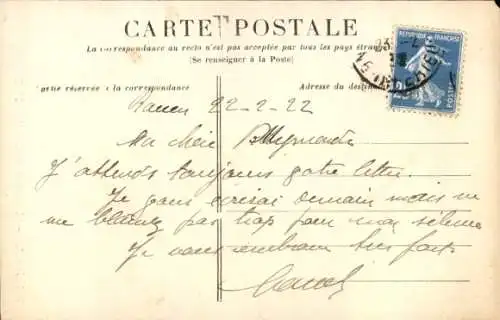 CARTE POSTALE
La correspondance au recto n'est pas acceptée par tous les pays étran
(Se renseigner à la Poste)
rtie réservée à la correspondance
Adresse du destin
REPUBLIQUE FRANÇAISE
25
POSTES
Rouen 22-2-22
Ma chère
J'attends toujours votre lettre.
Je vous écrirai demain mais ne
me pas trop pour mon silence
Je vous embrasse bien fort